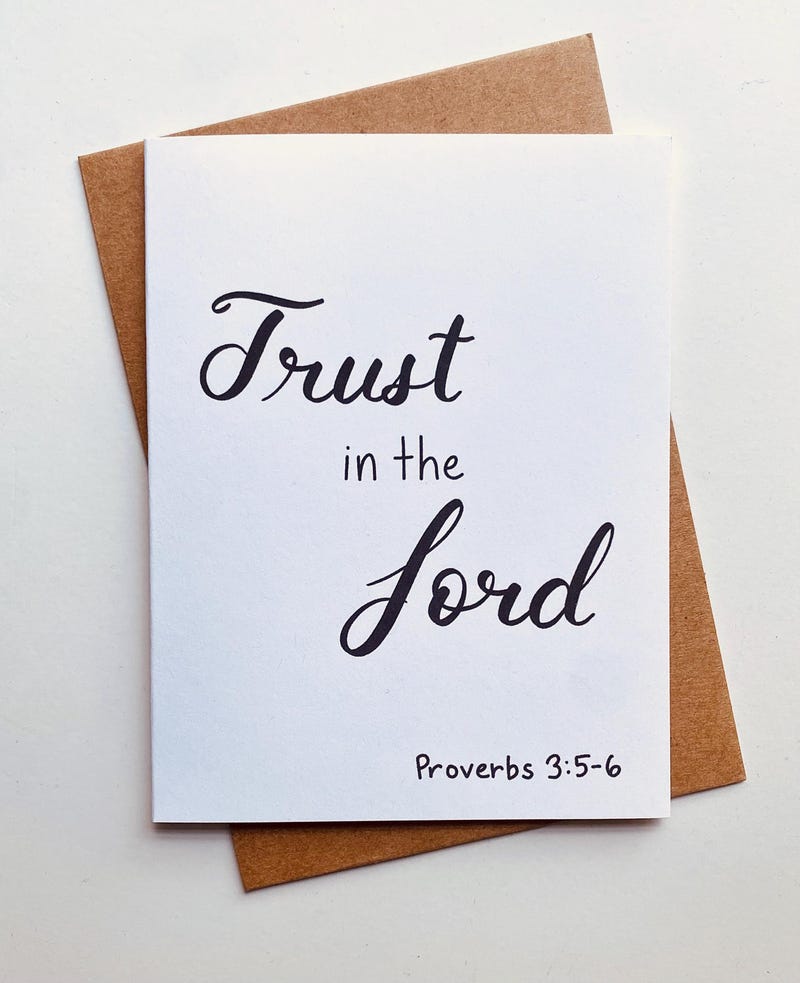 Trust
in the
Lord
Proverbs 3:5-6